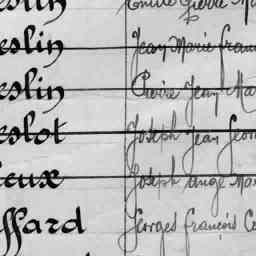 eslin Emile Pierre Ma
eslin Jean Marie Fran
eslin Pierre Jean Ma
eslot Joseph Jean Geor
ieux Joseph Ange Mar
ffard Georges François Ce